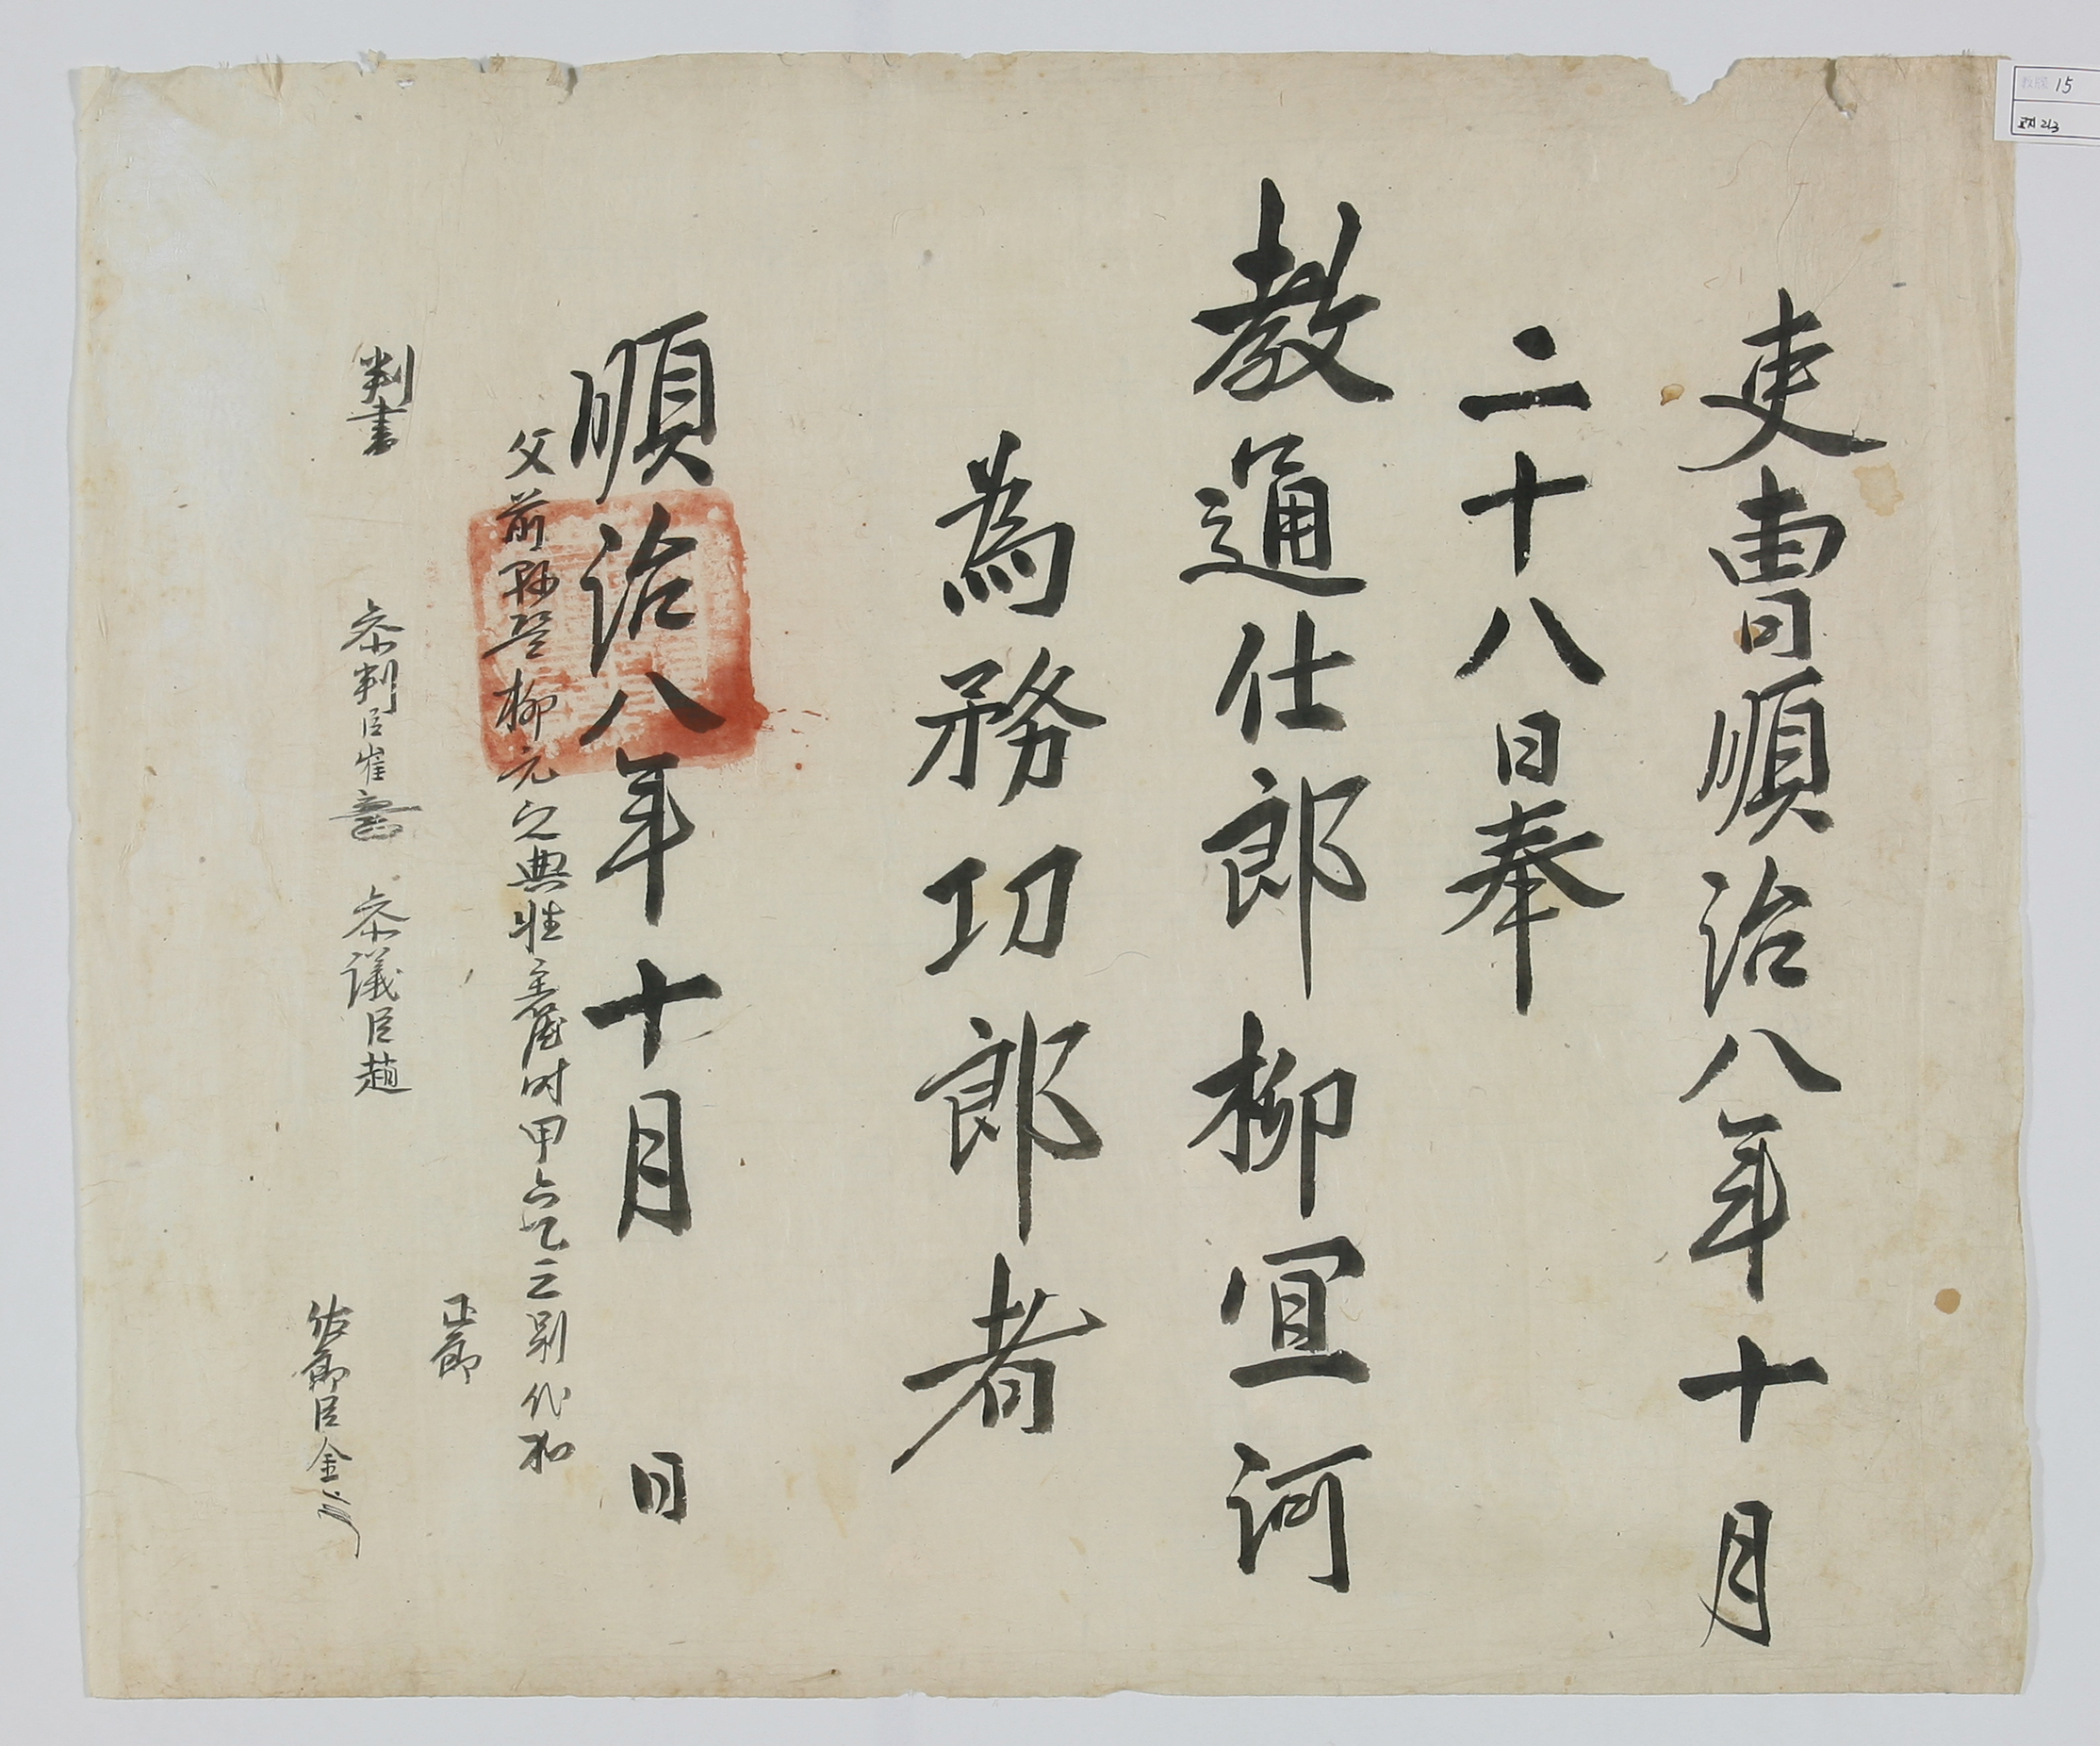 吏曹順治八年十月
二十八日奉
教通仕郎柳宜河
為務功郎者
順治八年十月 日
父前縣監柳元之典牲主簿時甲別代加
正郎
判書 參判臣崔 參議臣趙
佐郎臣金
15
213